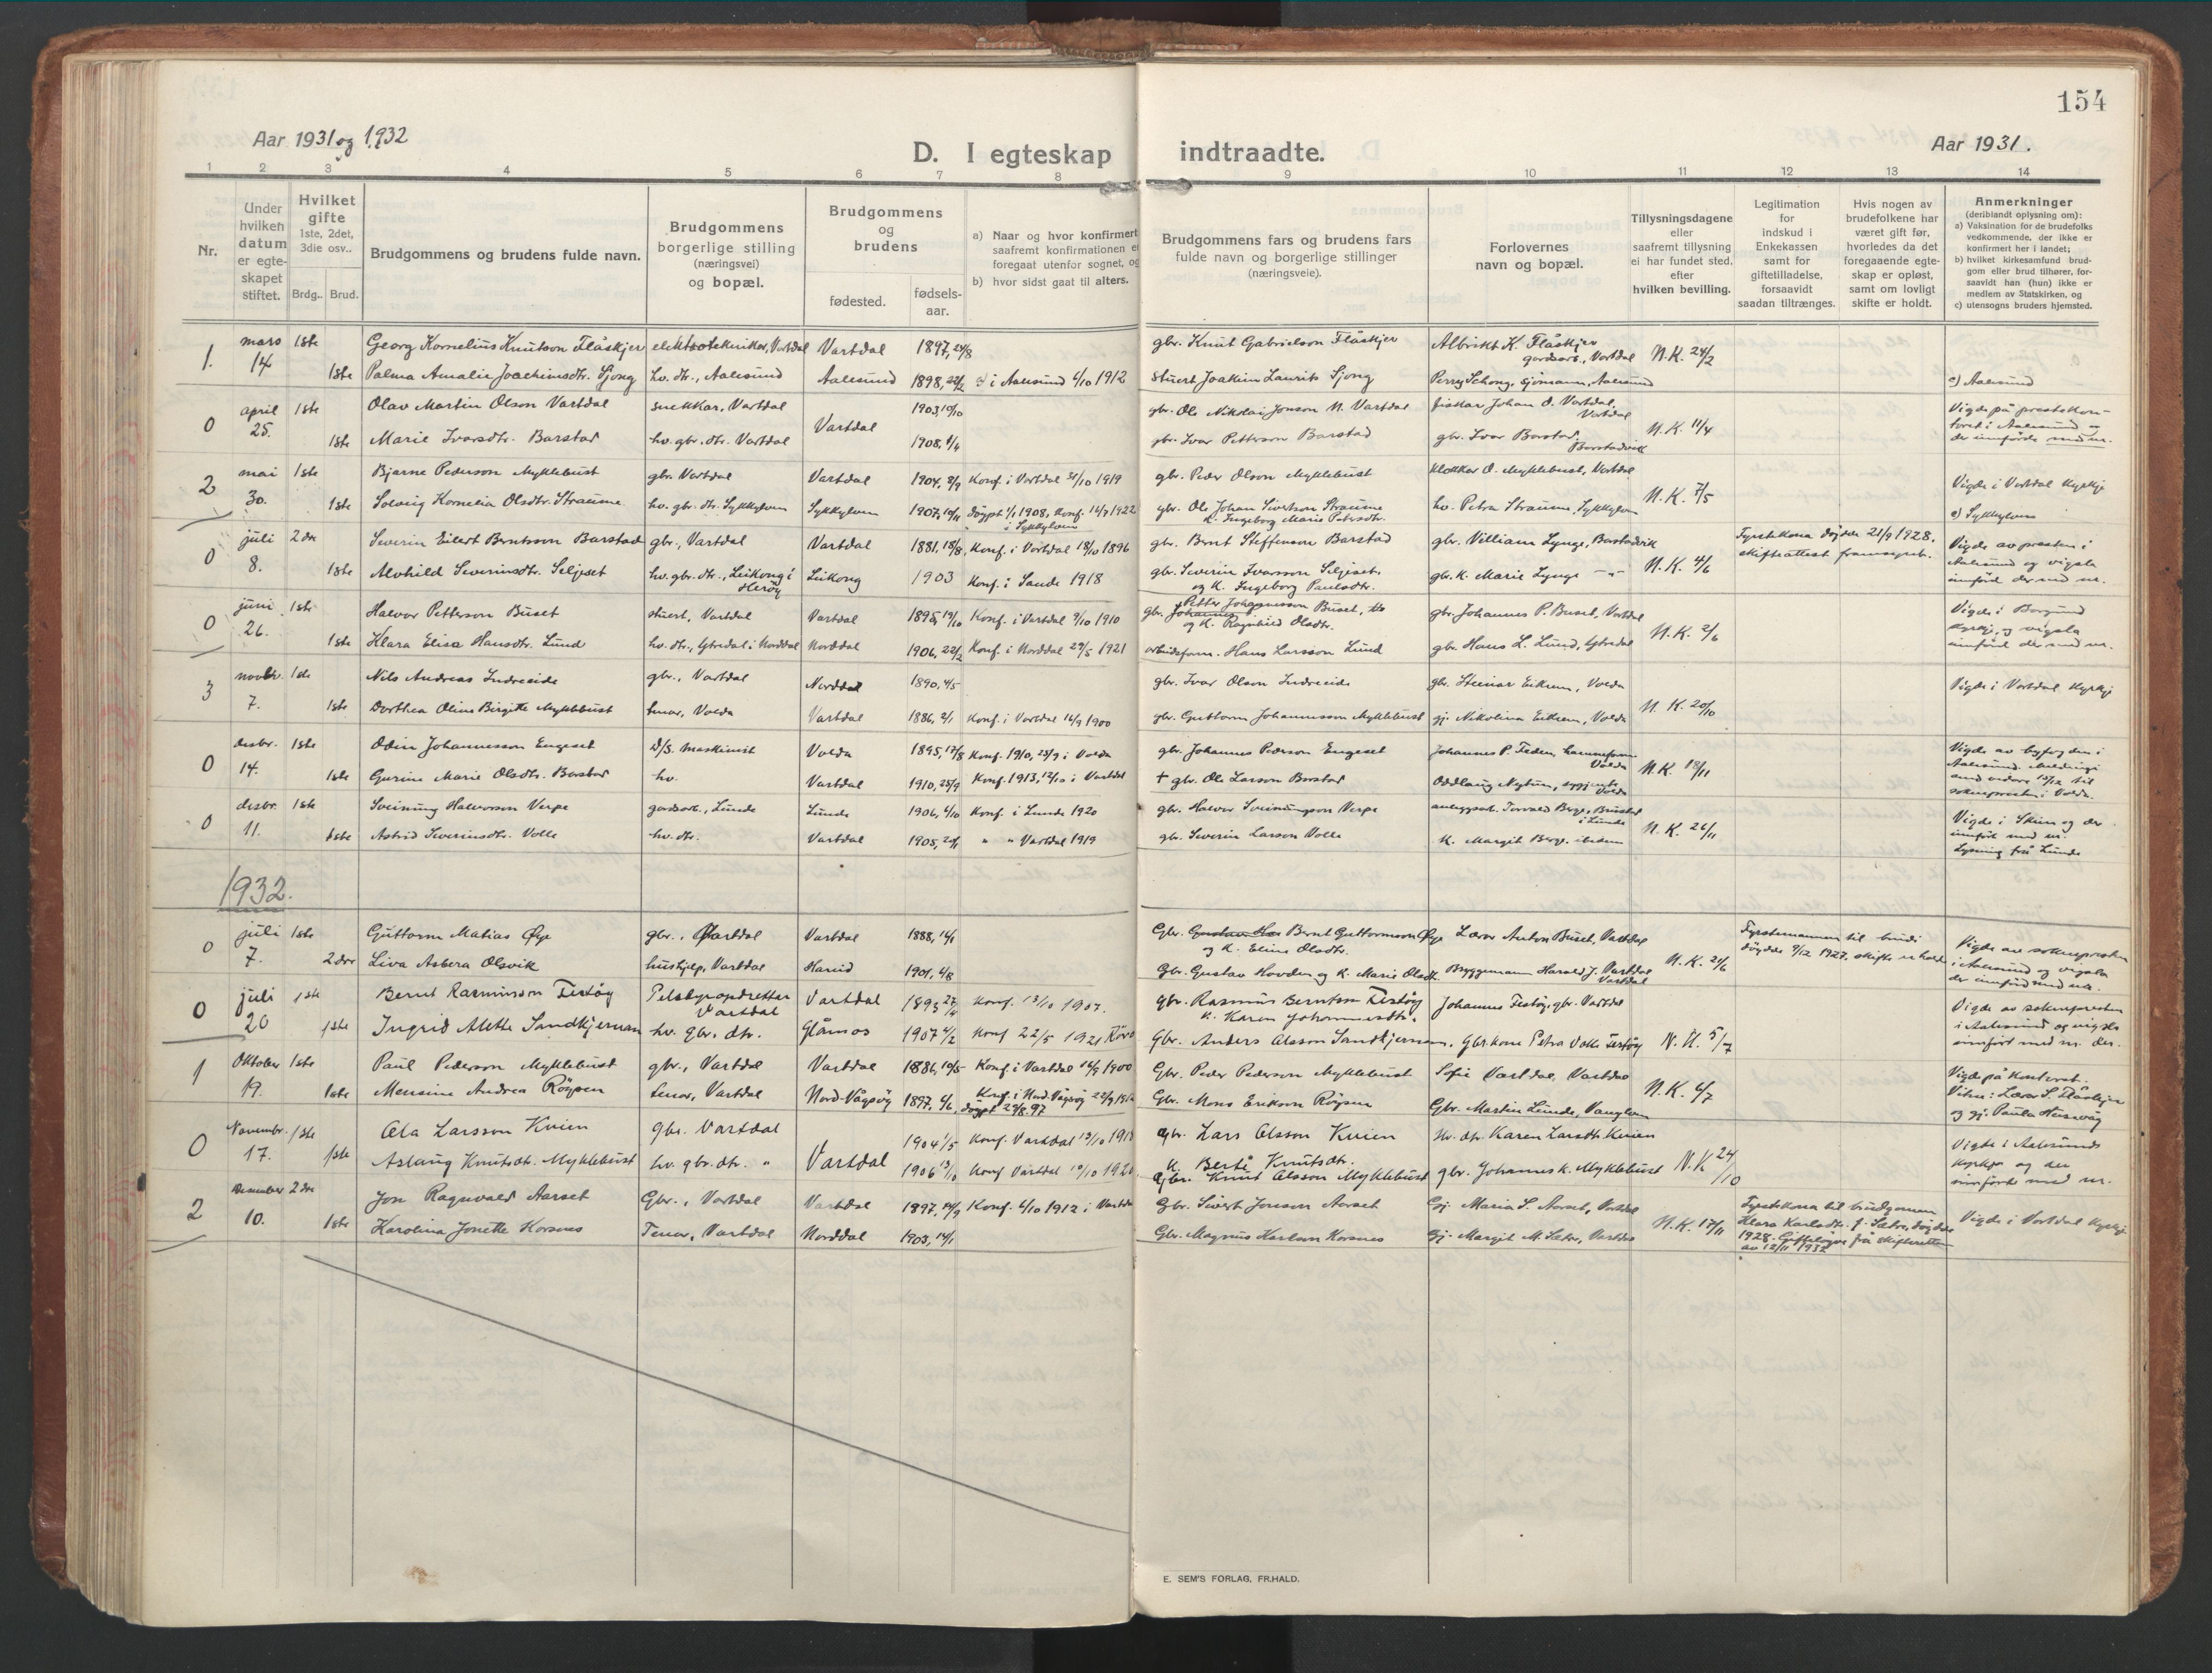 154
Aar 1931 og 1932
D. I egteskap indtraadte.
Aar 1931.
1 2 3 4 5 6 7 8 9 10 11 12 13 14
Nr.
Under hvilken datum er egteskapet stiftet.
Hvilket gifte 1ste, 2det, 3die osv..
Brdg.. Brud.
Brudgommens og brudens fulde navn.
Brudgommens borgerlige stilling (næringsvei) og bopæl.
Brudgommens og brudens
fødested. fødsels-aar.
a) Naar og hvor konfirmert saafremt konfirmationen er foregaat utenfor sognet, og
b) hvor sidst gaat til alters.
Brudgommens fars og brudens fars fulde navn og borgerlige stillinger (næringsveie).
Forlovernes navn og bopæl.
Tillysningsdagene eller saafremt tillysning ei har fundet sted, efter hvilken bevilling.
Legitimation for indskud i Enkekassen samt for giftetilladelse, forsaavidt saadan tiltrænges.
Hvis nogen av brudefolkene har været gift før, hvorledes da det foregaaende egteskap er opløst, samt om lovligt skifte er holdt.
Anmerkninger (deriblandt oplysning om):
a) Vaksination for de brudefolks vedkommende, der ikke er konfirmert her i landet;
b) hvilket kirkesamfund brudgom eller brud tilhører, forsaavidt han (hun) ikke er medlem av Statskirken, og
c) utensogns bruders hjemsted.
1. mars 14 1ste Georg Kornelius Knutson Flåskjer elektrotekniker, Vartdal Vartdal 1897, 24/8 gbr. Knut Gabrielson Flåskjer Albrikt K. Flåskjer gardsarb., Vartdal N.K. 24/2
1ste Palma Amalie Joachimsdtr. Sjong hv. dtr., Aalesund Aalesund 1898, 22/2 a) i Aalesund 6/10 1912 stuert Joakim Laurits Sjong Perry Schong, sjømann, Aalesund c) Aalesund
0 april 25. 1ste Olav Martin Olson Vartdal snekkar, Vartdal Vartdal 1903 19/10 gbr. Ole Nikolai Jonson N. Vartdal fiskar Johan O. Vartdal, Vartdal N.K. 11/4 Vigde på prestekontoret i Aalesund og der innførde med nr.
1ste Marie Ivarsdtr. Barstad hv. gbr. dtr. Vartdal 1908, 4/4 gbr. Ivar Petterson Barstad gbr. Ivar Barstad, Barstadvik
2 mai 30. 1ste Bjarne Pederson Myklebust gbr. Vartdal Vartdal 1904, 8/9 Konf. i Vartdal 31/10 1919 gbr. Peder Olson Myklebust klokkar O. Myklebust, Vartdal N.K. 7/5 Vigde i Vartdal kyrkje
1ste Solveig Kornelia Olsdtr. Straume hv. gbr. dtr. Sykkylven Sykkylven 1907, 10/11 døypt 1/1 1908, konf. 16/7 1922 i Sykkylven gbr. Ole Johan Sivertson Straume K. Ingeborg Marie Petersdtr. hv. Petra Straume, Sykkylven c) Sykkylven
0 juli 8. 2dre Severin Eilert Berntsson Barstad gbr., Vartdal Vartdal 1881, 18/8 Konf. i Vartdal 18/10 1896 gbr. Bernt Steffenson Barstad gbr. Villiam Lynge, Barstadvik N.K. 4/6 Fyrstekona døydde 21/9 1928. skifteattest framsynt. Vigde av presten i Aalesund og vigsla innførd der med nr.
1ste Alvhild Severinsdtr. Seljeset hv. gbr. dtr., Leikong i Herøy Leikong 1903 Konf. i Sande 1918 gbr. Severin Ivarsson Seljeset, og K. Ingeborg Paulsdtr. gbr. k. Marie Lynge —"—
0 juni 26. 1ste Halvor Petterson Buset stuert, Vartdal Vartdal 1895, 19/10 Konf. i Vartdal 9/10 1910 gbr. Petter Johannesson Buset, og K. Ragnhild Olsdtr. gbr. Johannes P. Buset, Vartdal N.K. 2/6 Vigde i Borgund kyrkje, og vigsla innførd der med nr.
1ste Klara Elisa Hansdtr. Lund hv. dtr., i Norddal Norddal 1906, 22/2 Konf. i Norddal 29/5 1921 arbeidsform. Hans Larsson Lund gbr. Hans L. Lund
3 novbr. 7. 1ste Nils Andreas Indreeide gbr., Vartdal Norddal 1890, 4/5 gbr. Ivar Olson Indreeide gbr. Steinar Eikrem, Volda N.K. 20/10 Vigde i Vartdal kyrkje
1ste Dorthea Oline Birgitte Myklebust tenar, Volda Vartdal 1886, 2/1 Konf. i Vartdal 16/9 1900 gbr. Guttorm Johannesson Myklebust gj. Nikolina Eikrem, Volda
0 desbr. 14. 1ste Odin Johannesson Engeset D/S. maskinist Volda 1895, 17/8 Konf. 1910, 25/9 i Volda gbr. Johannes Pederson Engeset Johannes P. N.K. 18/11 Vigde av byfogden i Aalesund.
1ste Gurine Marie Olsdtr. Barstad hv. Vartdal 1910, 25/9 Konf. 1913, 12/10 i Vartdal + gbr. Ole Larson Barstad Oddlaug Nytun, Volda
0 desbr. 11. 1ste Sveinung Halvorson Verpe gardsarb., Lunde Lunde 1906, 4/10 Konf. i Lunde 1920 gbr. Halvor Sveinungson Verpe anleggsarb. Torvald Berge, i Lunde N.K. 26/11 Vigde i Skien og der innført med nr. Lysning frå Lunde
1ste Astrid Severinsdtr. Volle hv. dtr. Vartdal 1905, 20/1 " " Vartdal 1919 gbr. Severin Larson Volle K. Margit Berge. ibidem
1932.
0 juli 7. 1ste Guttorm Matias Øye gbr., Vartdal Vartdal 1888, 14/1 Gbr. Bernt Guttormson Øye og K. Eline Olsdtr. Lærar Anton Buset, Vartdal N.K. 21/6 Fyrstemannen til brudi døydde 9/12 1927. skifte er halde Vigde av soknepresten i Aalesund og vigsla der innførd med nr.
2dre Liva Asbera Olsvik hushjelp, Vartdal Hareid 1901, 4/8 Gbr. Gustav Hovden og K. Marie Olsdtr. Byggemann Harald J. Vartdal Vartdal
0 juli 20 1ste Bernt Rasmusson Festøy Pelsdyropdretter Vartdal Vartdal 1893 27/4 Konf. 13/10 1907. gbr. Rasmus Berntson Festøy K. Karen Johannesdtr. Johannes Festøy, gbr. Vartdal N.K. 5/7 Vigde av soknepresten i Aalesund og vigsla innført med nr. der.
1ste Ingrid Alette Sandkjernan hv. gbr. dtr. Glåmos 1907 4/2 Konf 22/5 1921 Röros Gbr. Anders Olsson Sandkjernan. Gbr. kone Petra Volle Festøy
1 Oktober 19. 1ste Paul Pederson Myklebust gbr., Vartdal Vartdal 1886, 19/5 Konf i Vartdal 16/9 1900 Gbr. Peder Pederson Myklebust Sofie Vartdal, Vartdal N.K. 6/7 Vigde på kontoret. Vitne: Lærar S. Flåskjer og gj. Paula
1ste Mensine Andrea Röysen tenar, Vartdal Nord-Vågsöy 1897, 4/6. Konf. i Nord-Vågsöy 22/9 døypt 29/8 97 Gbr. Mons Erikson Röysen Gbr. Martin Lunde, Vanylven
0 Novembr. 17. 1ste Ola Larsson Kvien gbr. Vartdal Vartdal 1904 1/5 Konf. Vartdal 13/10 1918 gbr. Lars Olsson Kvien K. Berte Knutsdtr. Hv. dtr. Karen Larsdtr. Kvien N.K. 24/10 Vigde i Aalesunds kyrkje og der innførde med nr.
1ste Aslaug Knutsdtr. Myklebust hv. gbr. dtr. " 1906 13/10 Konf Vartdal 10/10 1920 gbr. Knut Olsson Myklebust gbr. Johannes K. Myklebust
2 Desember 10. 2dre Jon Ragnvald Aarset Gbr., Vartdal Vartdal 1897, 14/9 Konf. 6/10 1912 i Vartdal Gbr. Sivert Jonson Aarset Gj. Maria S. Aarset, Vartdal N.K. 17/11 Fyrstekona til brudgomen Klara Karlsdtr. f. Sætre, døydde 1928. Gifteløyve frå skifteretten av 12/11 1932 Vigde i Vartdal kyrkje
1ste Karolina Jonette Korsnes Tenar, Vartdal Norddal 1903, 14/1 Gbr. Magnus Karlson Korsnes Gj. Margit M. Sætre, Vartdal
E. SEM'S FORLAG, FR.HALD.